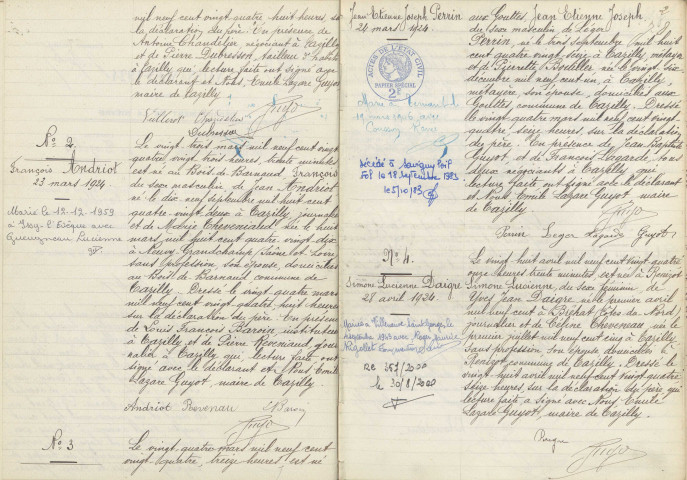 mil neuf cent vingt quatre, huit heures, sur
la déclaration du père. En présence de
Antoine Chandelier négociant à Cazilly
et de Pierre Dubresson, tailleur d'habits
à Cazilly qui, lecture faite ont signé avec
le déclarant et Nous, Emile Lazare Guyot
maire de Cazilly.
Dubresson
Guyot
N° 2
François Andriot
23 mars 1924
Marié le 12-12-1959
à Issy-l'Evêque avec
Lucienne
Le vingt trois mars mil neuf cent vingt
quatre, vingt trois heures, trente minutes
est né au Bois de Barnaud, François
du sexe masculin, de Jean Andriot
né le dix neuf septembre mil huit cent
quatre vingt deux à Cazilly, journalier
et de Marie Cheveniaud, née le huit
mars mil huit cent quatre vingt dix
à Neuvy Grandchamp (Saône et Loire)
sans profession, son épouse, domiciliés
au Bois de Barnaud commune de
Cazilly. Dressé le vingt quatre mars
mil neuf cent vingt quatre huit heures
sur la déclaration du père. En présence
de Louis François Baroin, instituteur
à Cazilly et de Pierre Reveniaud, journalier
à Cazilly qui, lecture faite ont
signé avec le déclarant et Nous Emile
Lazare Guyot, maire de Cazilly.
Andriot
Baroin
Guyot
N° 3
Le vingt quatre mars mil neuf cent
vingt quatre, treize heures, est né
Jean Etienne Joseph Perrin
24 mars 1924.
ACTES DE L'ETAT CIVIL
PAPIER SPECIAL
2F
Marié à
avec
Décédé à Savigny Poil
Fol le 18 septembre 1983
le 5/10/83
aux Gouttes, Jean Etienne Joseph
du sexe masculin de Léger
Perrin, né le trois septembre mil huit
cent quatre vingt seize à Cazilly, métayer
et de Pierrette Boulle, née le vingt six
décembre mil neuf cent un, à Cazilly,
métayère, son épouse, domiciliés aux
Gouttes, commune de Cazilly. Dressé
le vingt quatre mars mil neuf cent vingt
quatre, seize heures, sur la déclaration
du père. En présence de Jean Baptiste
Guyot, et de François Lagarde, tous
deux négociants à Cazilly qui
lecture faite ont signé avec le déclarant
et Nous, Emile Lazare Guyot, maire
de Cazilly.
Guyot
Perrin Léger Lagarde Guyot
N° 4.
Simone Lucienne Daigre
28 avril 1924.
Mariée à Villeneuve Saint Georges le
avec Roger
RC 259/2000
le 30/8/2000
Le vingt huit avril mil neuf cent vingt quatre
onze heures trente minutes est née à
Simone Lucienne, du sexe féminin de
Yves Jean Daigre né le premier avril
mil neuf cent à (Côtes du Nord)
journalier et de Cheveneau, née le
premier juillet mil neuf cent cinq à Cazilly
sans profession son épouse domiciliés à
commune de Cazilly. Dressé le
vingt huit avril mil neuf cent vingt quatre
seize heures sur la déclaration du père, qui
lecture faite a signé avec Nous, Emile
Lazare Guyot, maire de Cazilly.
Daigre
Guyot